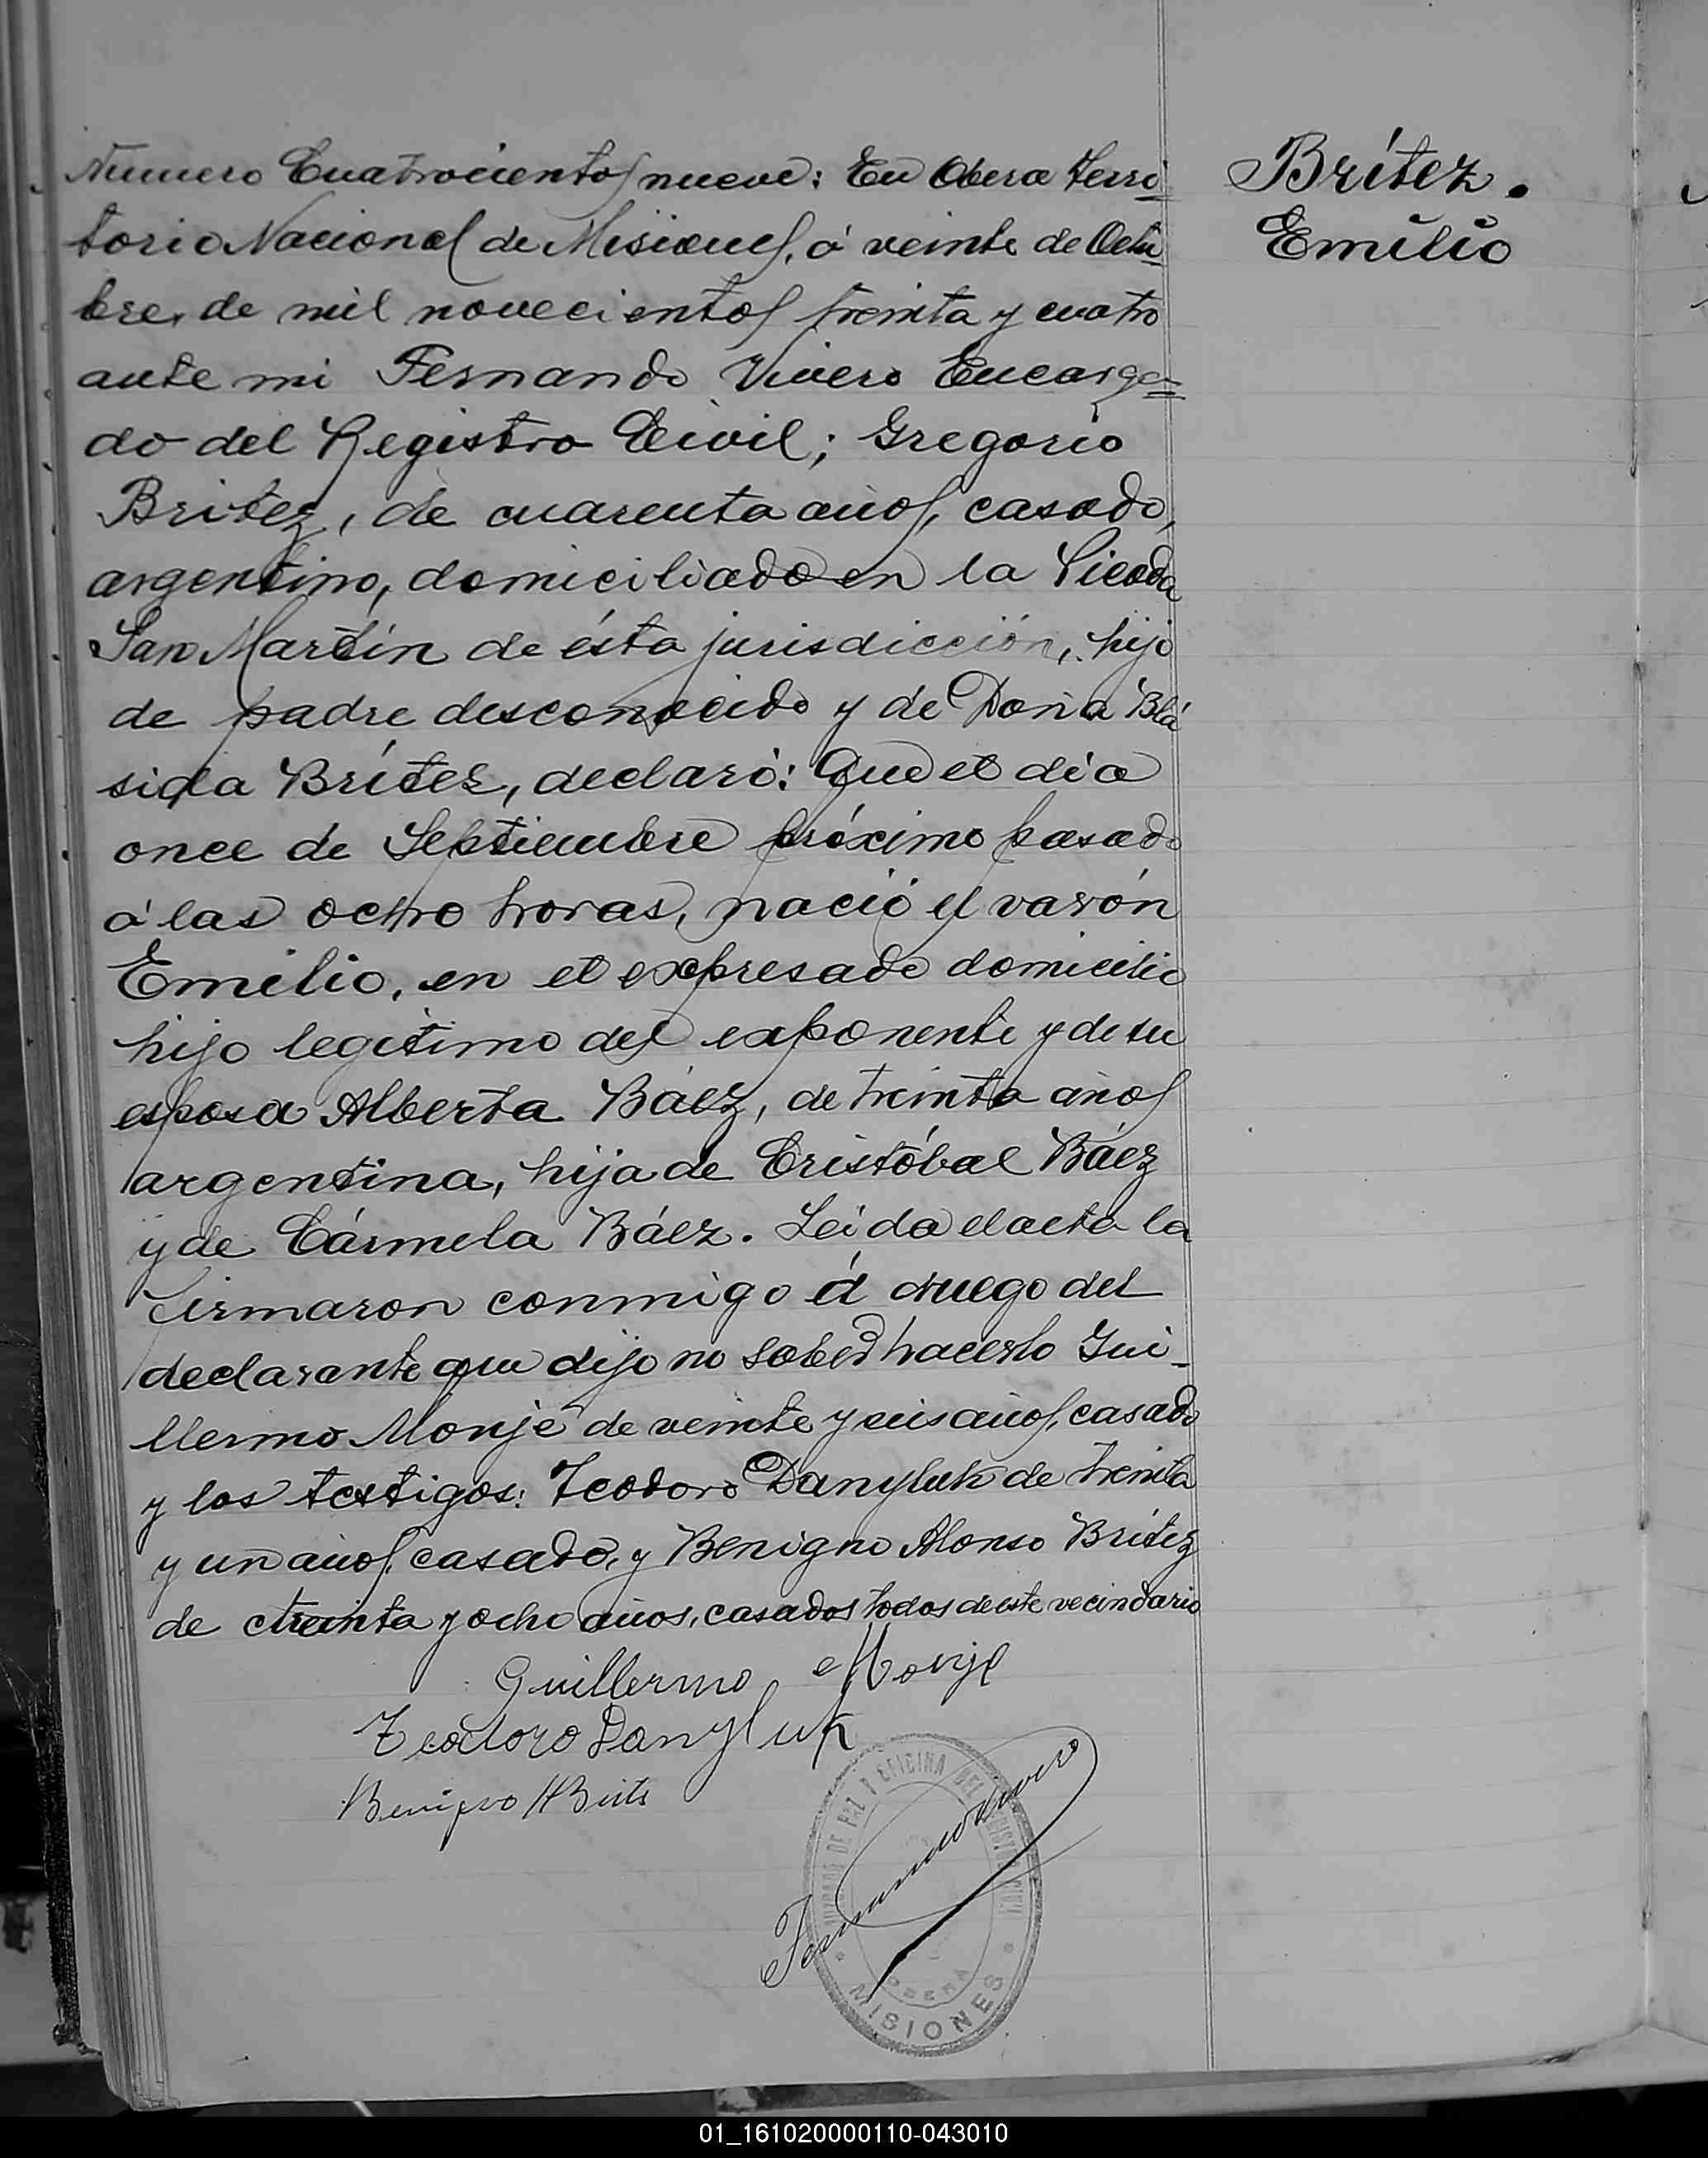 Numero Cuatrocientos nueve: En Obera Terri-
torio Nacional de Misiones, á veinte de Octu-
bre, de mil novecientos treinta y cuatro
ante mi Fernando Vivero Encarga-
do del Registro Civil; Gregorio
Britez, de cuarenta años, casado,
argentino, domiciliado en la Picada
San Martín de ésta jurisdicción, hijo
de padre desconocido y de Doña Blá
sida Brítez, declaró: Que el día
once de Septiembre próximo pasado
á las ocho horas, nació el varón
Emilio, en el expresado domicilio
hijo legítimo del exponente y de su
esposa Alberta Báez, de treinta años
argentina, hija de Cristóbal Báez
y de Cármela Báez. Leida el acta la
firmaron conmigo á ruego del
declarante que dijo no saber hacerlo Gui-
llermo Monje de veinte y seis años, casado
y los testigos: Teodoro Danyluk de treinta
y un años, casado, y Benigno Alonso Brítez
de treinta y ocho años, casados todos de este vecindario
Guillermo Monje
Teodoro Danyluk
Benigno A Brits
Fernando Vivero
JUZGADO DE PAZ Y OFICINA DEL REGISTRO CIVIL
OBERA
MISIONES
Brítez.
Emilio
01_161020000110-043010